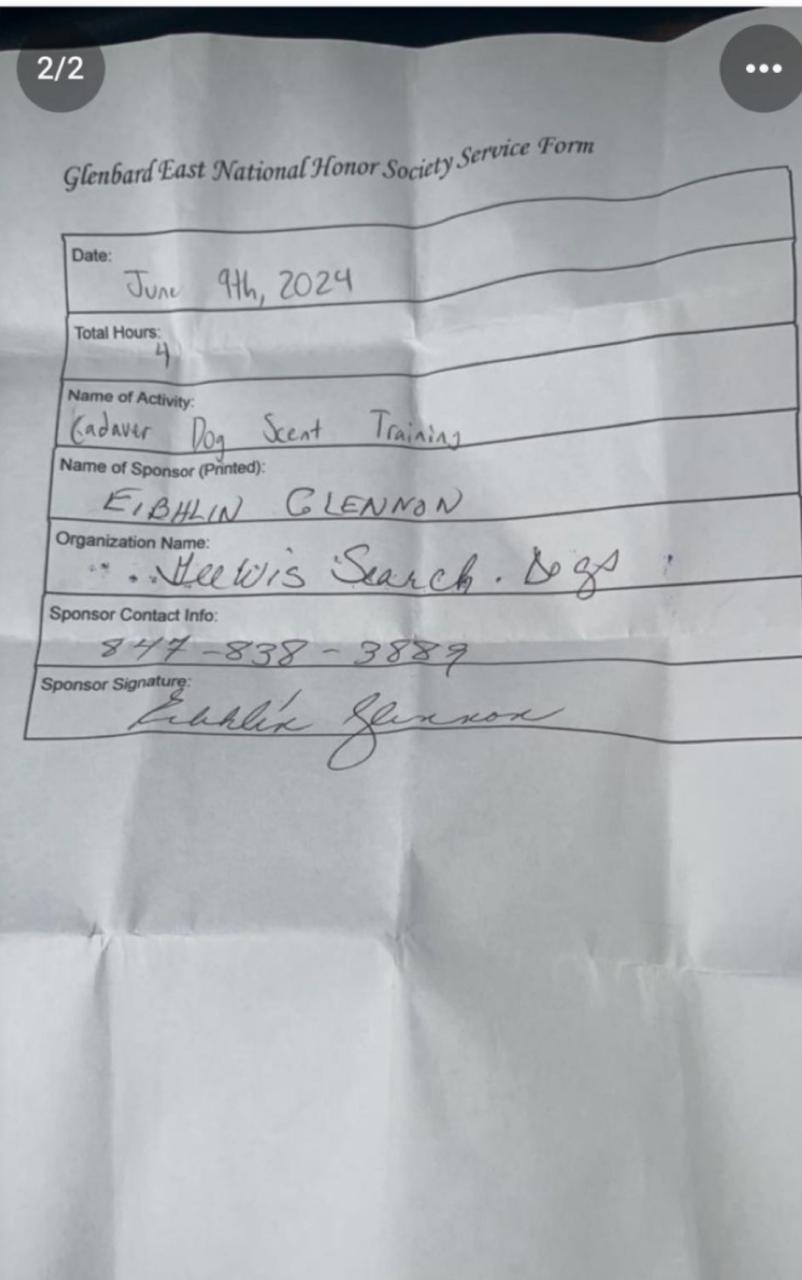 2/2
Glenbard East National Honor Society Service Form
Date:
June 9th, 2024
Total Hours:
4
Name of Activity:
Cadaver Dog Scent Training
Name of Sponsor (Printed):
EIBHLIN GLENNON
Organization Name:
Search Dogs
Sponsor Contact Info:
847-838-3889
Sponsor Signature:
Eibhlín Glennon